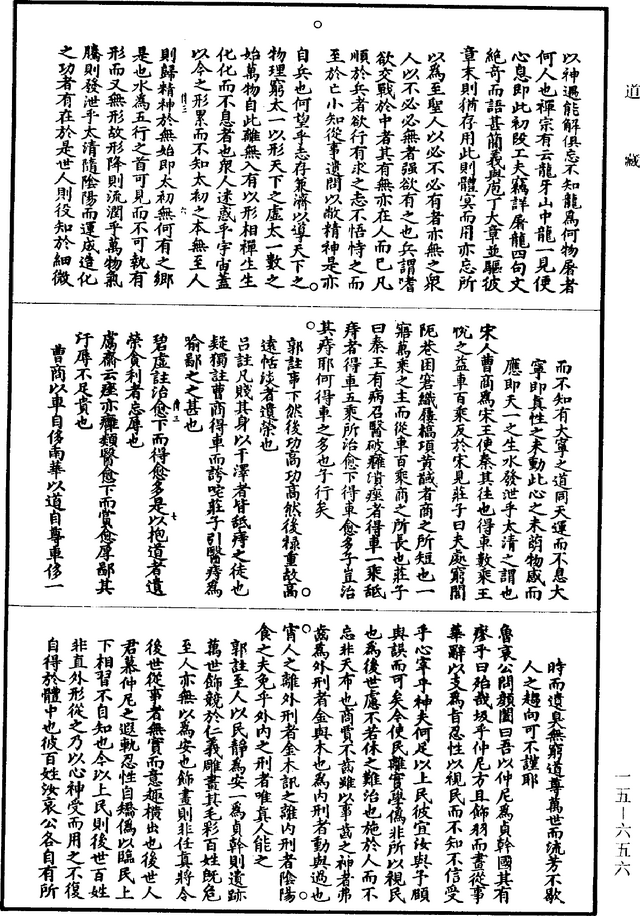 道藏
以神遇能解俱忘不知龍為何物屠者
何人也禪宗有云龍牙山中龍一見便
心息即此初段工夫竊詳屠龍四句文
絕奇而語甚簡義與庖丁大章並驅彼
章末則猶存用此則體冥而用亦忘所
以為至聖人以必不必有者亦無之衆
人以不必必無者強欲有之也兵謂嗜
欲交戰於中者其有無亦在人而已凡
順於兵者欲行有求之志不悟恃之而
至於亡小知從事遺問以敝精神是亦
自兵也何望乎志存兼濟以導天下之
物理窮太一以形天下之虛太一數之
始萬物自此離無入有以形相禪生生
化化而不息者也衆人迷惑乎宇宙蓋
以今之形累而不知太初之本無至人
則歸精神於無始即太初無何有之鄉
是也水為五行之首可見而不可執有
形而又無形故形降則流潤乎萬物氣
騰則發泄乎太清隨陰陽而運成造化
之功者有在於是世人則役知於細微
而不知有大寧之道同天運而不息大
寧即真性之未動此心之未萌物感而
應即天一之生水發泄乎太清之謂也
宋人曹商為宋王使秦其往也得車數乘王
悅之益車百乘反於宋見莊子曰夫處窮閭
阨巷困窘織屨槁項黃馘者商之所短也一
寤萬乘之主而從車百乘商之所長也莊子
曰秦王有病召醫破癰潰痤者得車一乘舐
痔者得車五乘所治愈下得車愈多子豈治
其痔耶何得車之多也子行矣
郭註事下然後功高功高然後祿重故高
遠恬淡者遺榮也
呂註凡賤其身以干澤者皆舐痔之徒也
疑獨註曹商得車而誇咤莊子引醫痔為
喻鄙之之甚也
碧虛註治愈下而得愈多是以抱道者遺
榮貪利者忘辱也
鬳齋云痤亦癰類醫愈下而賞愈厚鄙其
汙辱不足貴也
曹商以車自侈南華以道自尊車侈一
時而道具無窮道尊萬世而流芳不歇
人之趨向可不謹耶
魯哀公問顏闔曰吾以仲尼為貞幹國其有
瘳乎曰殆哉圾乎仲尼方且飾羽而畫從事
華辭以支為旨忍性以視民而不知不信受
乎心宰乎神夫何足以上民彼宜汝與予頤
與誤而可矣今使民離實學偽非所以視民
也為後世慮不若休之難治也施於人而不
忘非天布也商賈不齒雖以事齒之神者弗
齒為外刑者金與木也為內刑者動與過也
宵人之離外刑者金木訊之離內刑者陰陽
食之夫免乎外內之刑者唯真人能之
郭註至人以民靜為安一為貞幹則遺跡
萬世飾競於仁義雕畫其毛彩百姓既危
至人亦無以為安也飾畫則非任真將令
後世從事者無實而意趣橫出也後世人
君慕仲尼之遐軌忍性自矯偽以臨民上
下相習不自知也今以上民則後世百姓
非直外形從之乃以心神受而用之不復
自得於體中也彼百姓汝哀公各自有所
一五—六五六